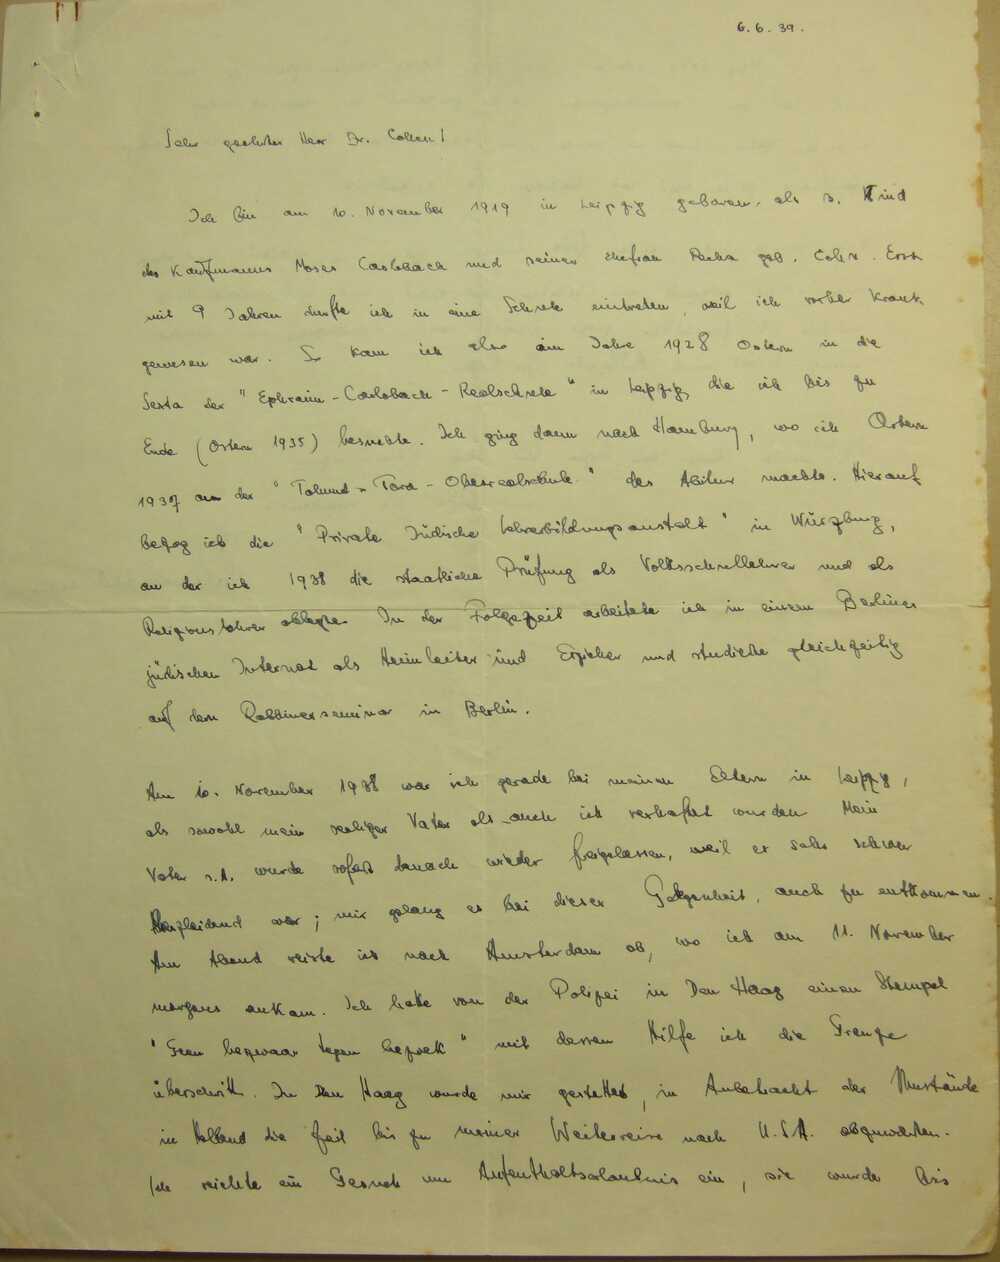 6.6.39.
Sehr geehrter Herr Dr. Cohen!
Ich bin am 10. November 1919 in Leipzig geboren, als 3. Kind
des Kaufmanns Moses Carlebach und seiner Ehefrau Recha geb. Cohn. Erst
mit 9 Jahren durfte ich in eine Schule eintreten, weil ich vorher krank
gewesen war. So kam ich also im Jahre 1928 Ostern in die
Sexta der "Ephraim-Carlebach-Realschule" in Leipzig, die ich bis zu
Ende (Ostern 1935) besuchte. Ich ging dann nach Hamburg, wo ich Ostern
1937 an der "Talmud-Tora-Oberrealschule" das Abitur machte. Hierauf
bezog ich die "Private Jüdische Lehrerbildungsanstalt" in Würzburg,
an der ich 1938 die staatliche Prüfung als Volksschullehrer und als
Religionslehrer ablegte. In der Folgezeit arbeitete ich in einem Berliner
jüdischen Internat als Heimleiter und Erzieher und studierte gleichzeitig
auf dem Rabbinerseminar in Berlin.
Am 10. November 1938 war ich gerade bei meinen Eltern in Leipzig,
als sowohl mein seeliger Vater als auch ich verhaftet wurden. Mein
Vater s.A. wurde sofort danach wieder freigelassen, weil er sehr schwer
herzleidend war; mir gelang es bei dieser Gelegenheit, auch zu entkommen.
Am Abend reiste ich nach Amsterdam ab, wo ich am 11. November
morgens ankam. Ich hatte von der Polizei in Den Haag einen Stempel
"Geen bezwaar tegen bezoek" mit dessen Hilfe ich die Grenze
überschritt. In Den Haag wurde mir gestattet, in Anbetracht der Umstände
in Holland die Zeit bis zu meiner Weiterreise nach U.S.A. abzuwarten.
Ich reichte ein Gesuch um Aufenthaltserlaubnis ein, sie wurde bis